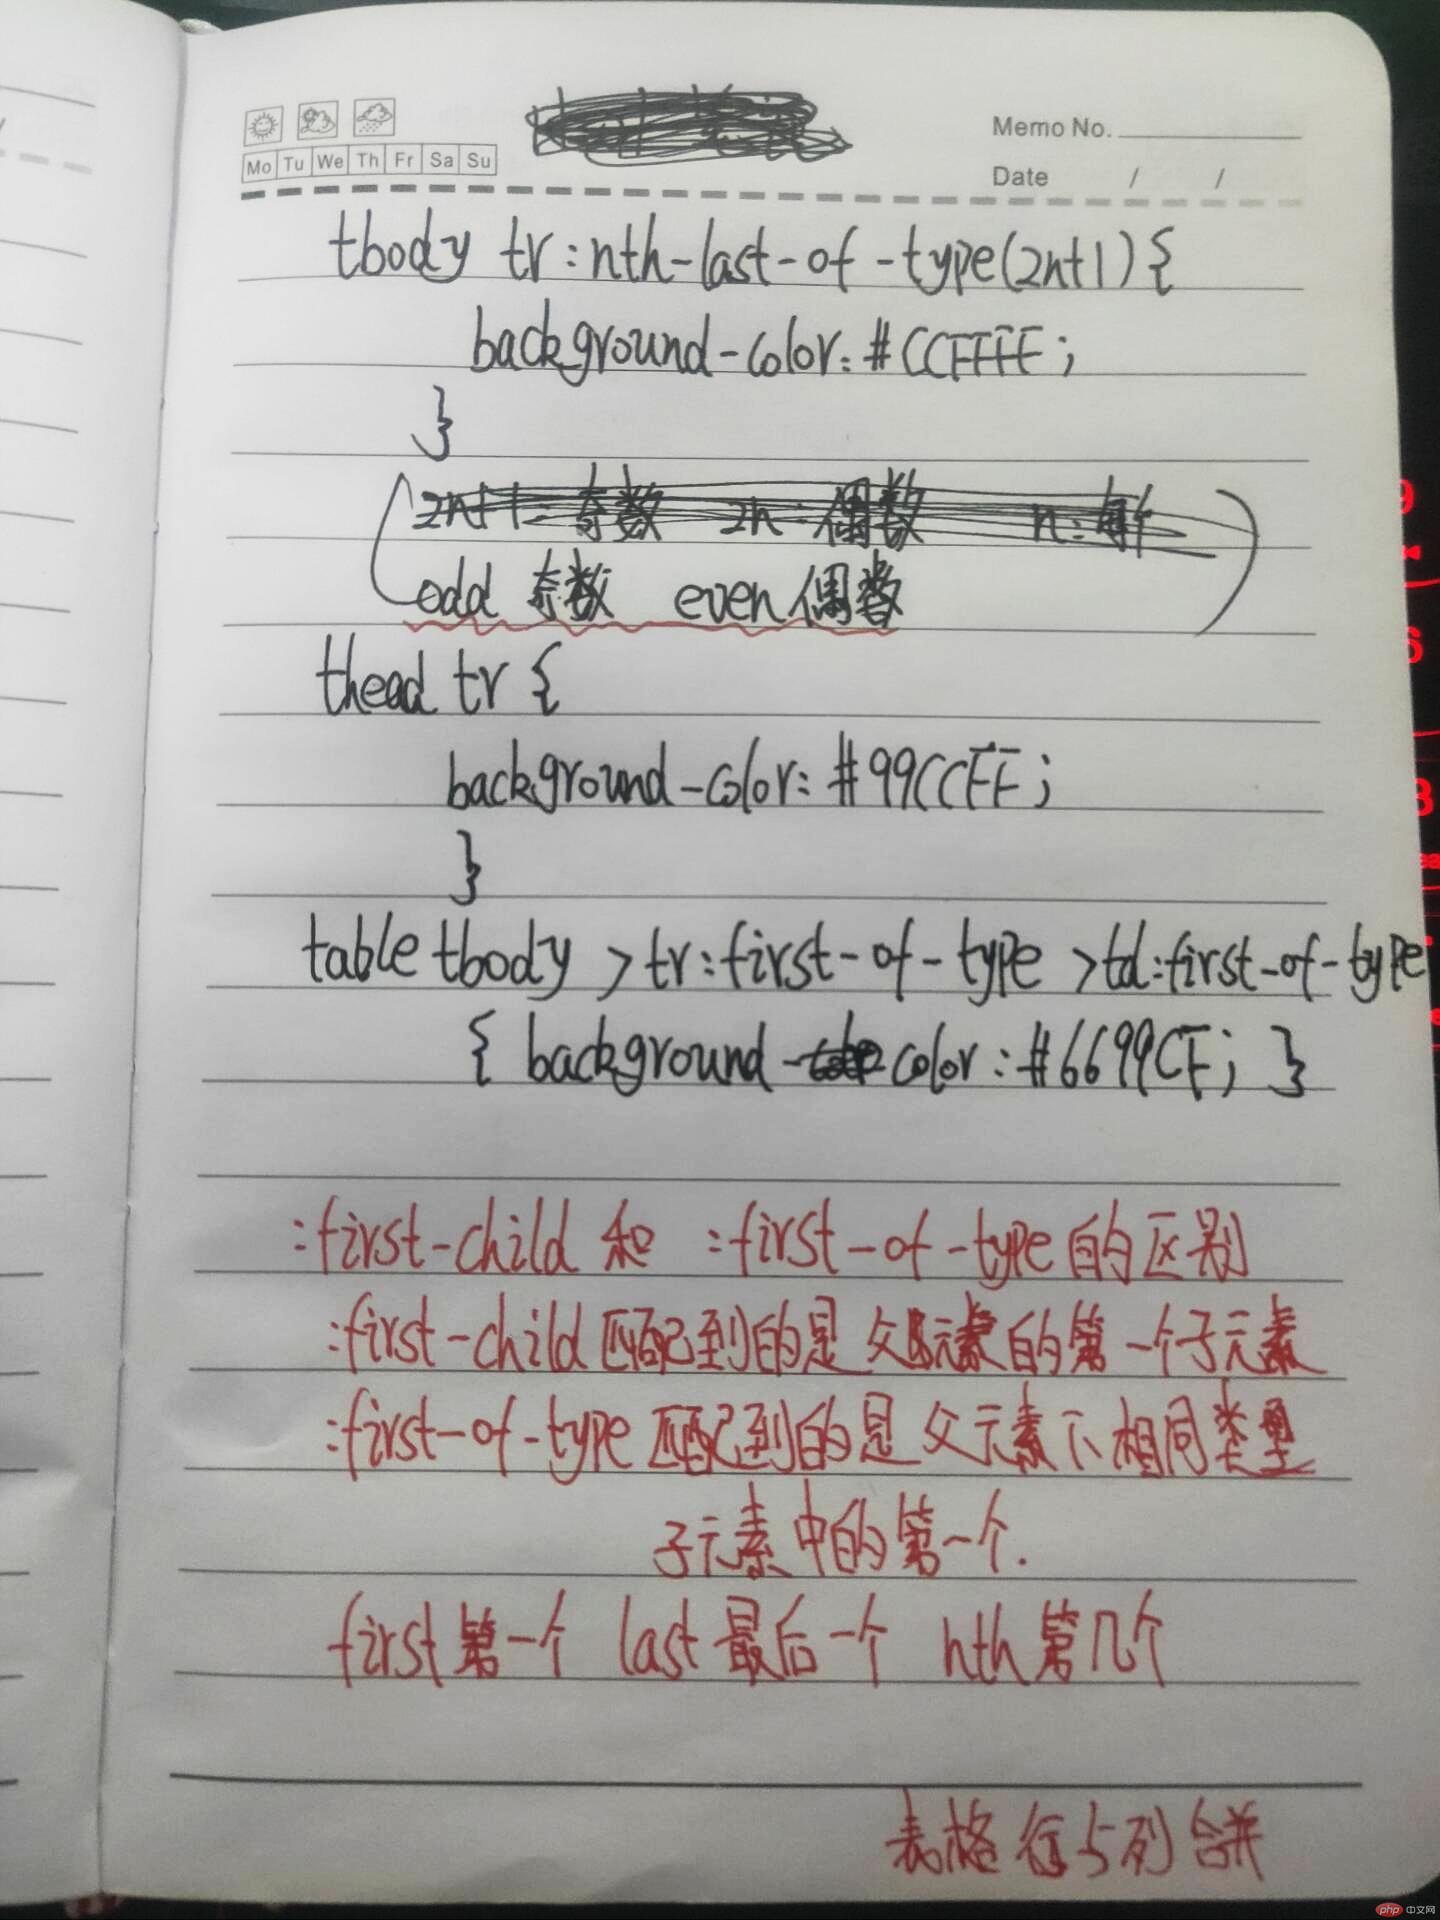 Mo Tu We Th Fr Sa Su
Memo No.
Date / /
tbody tr:nth-last-of-type(2n+1){
background-color:#CCFFFF;
}
(2n+1:奇数 2n:偶数 n:每个
odd 奇数 even 偶数)
thead tr {
background-color:#99CCFF;
}
table tbody >tr:first-of-type >td:first-of-type
{ background-color:#6699CF; }
:first-child 和 :first-of-type的区别
:first-child匹配到的是父元素的第一个子元素
:first-of-type匹配到的是父元素下相同类型
子元素中的第一个.
first第一个 last最后一个 nth第几个
表格行与列合并
php 中文网